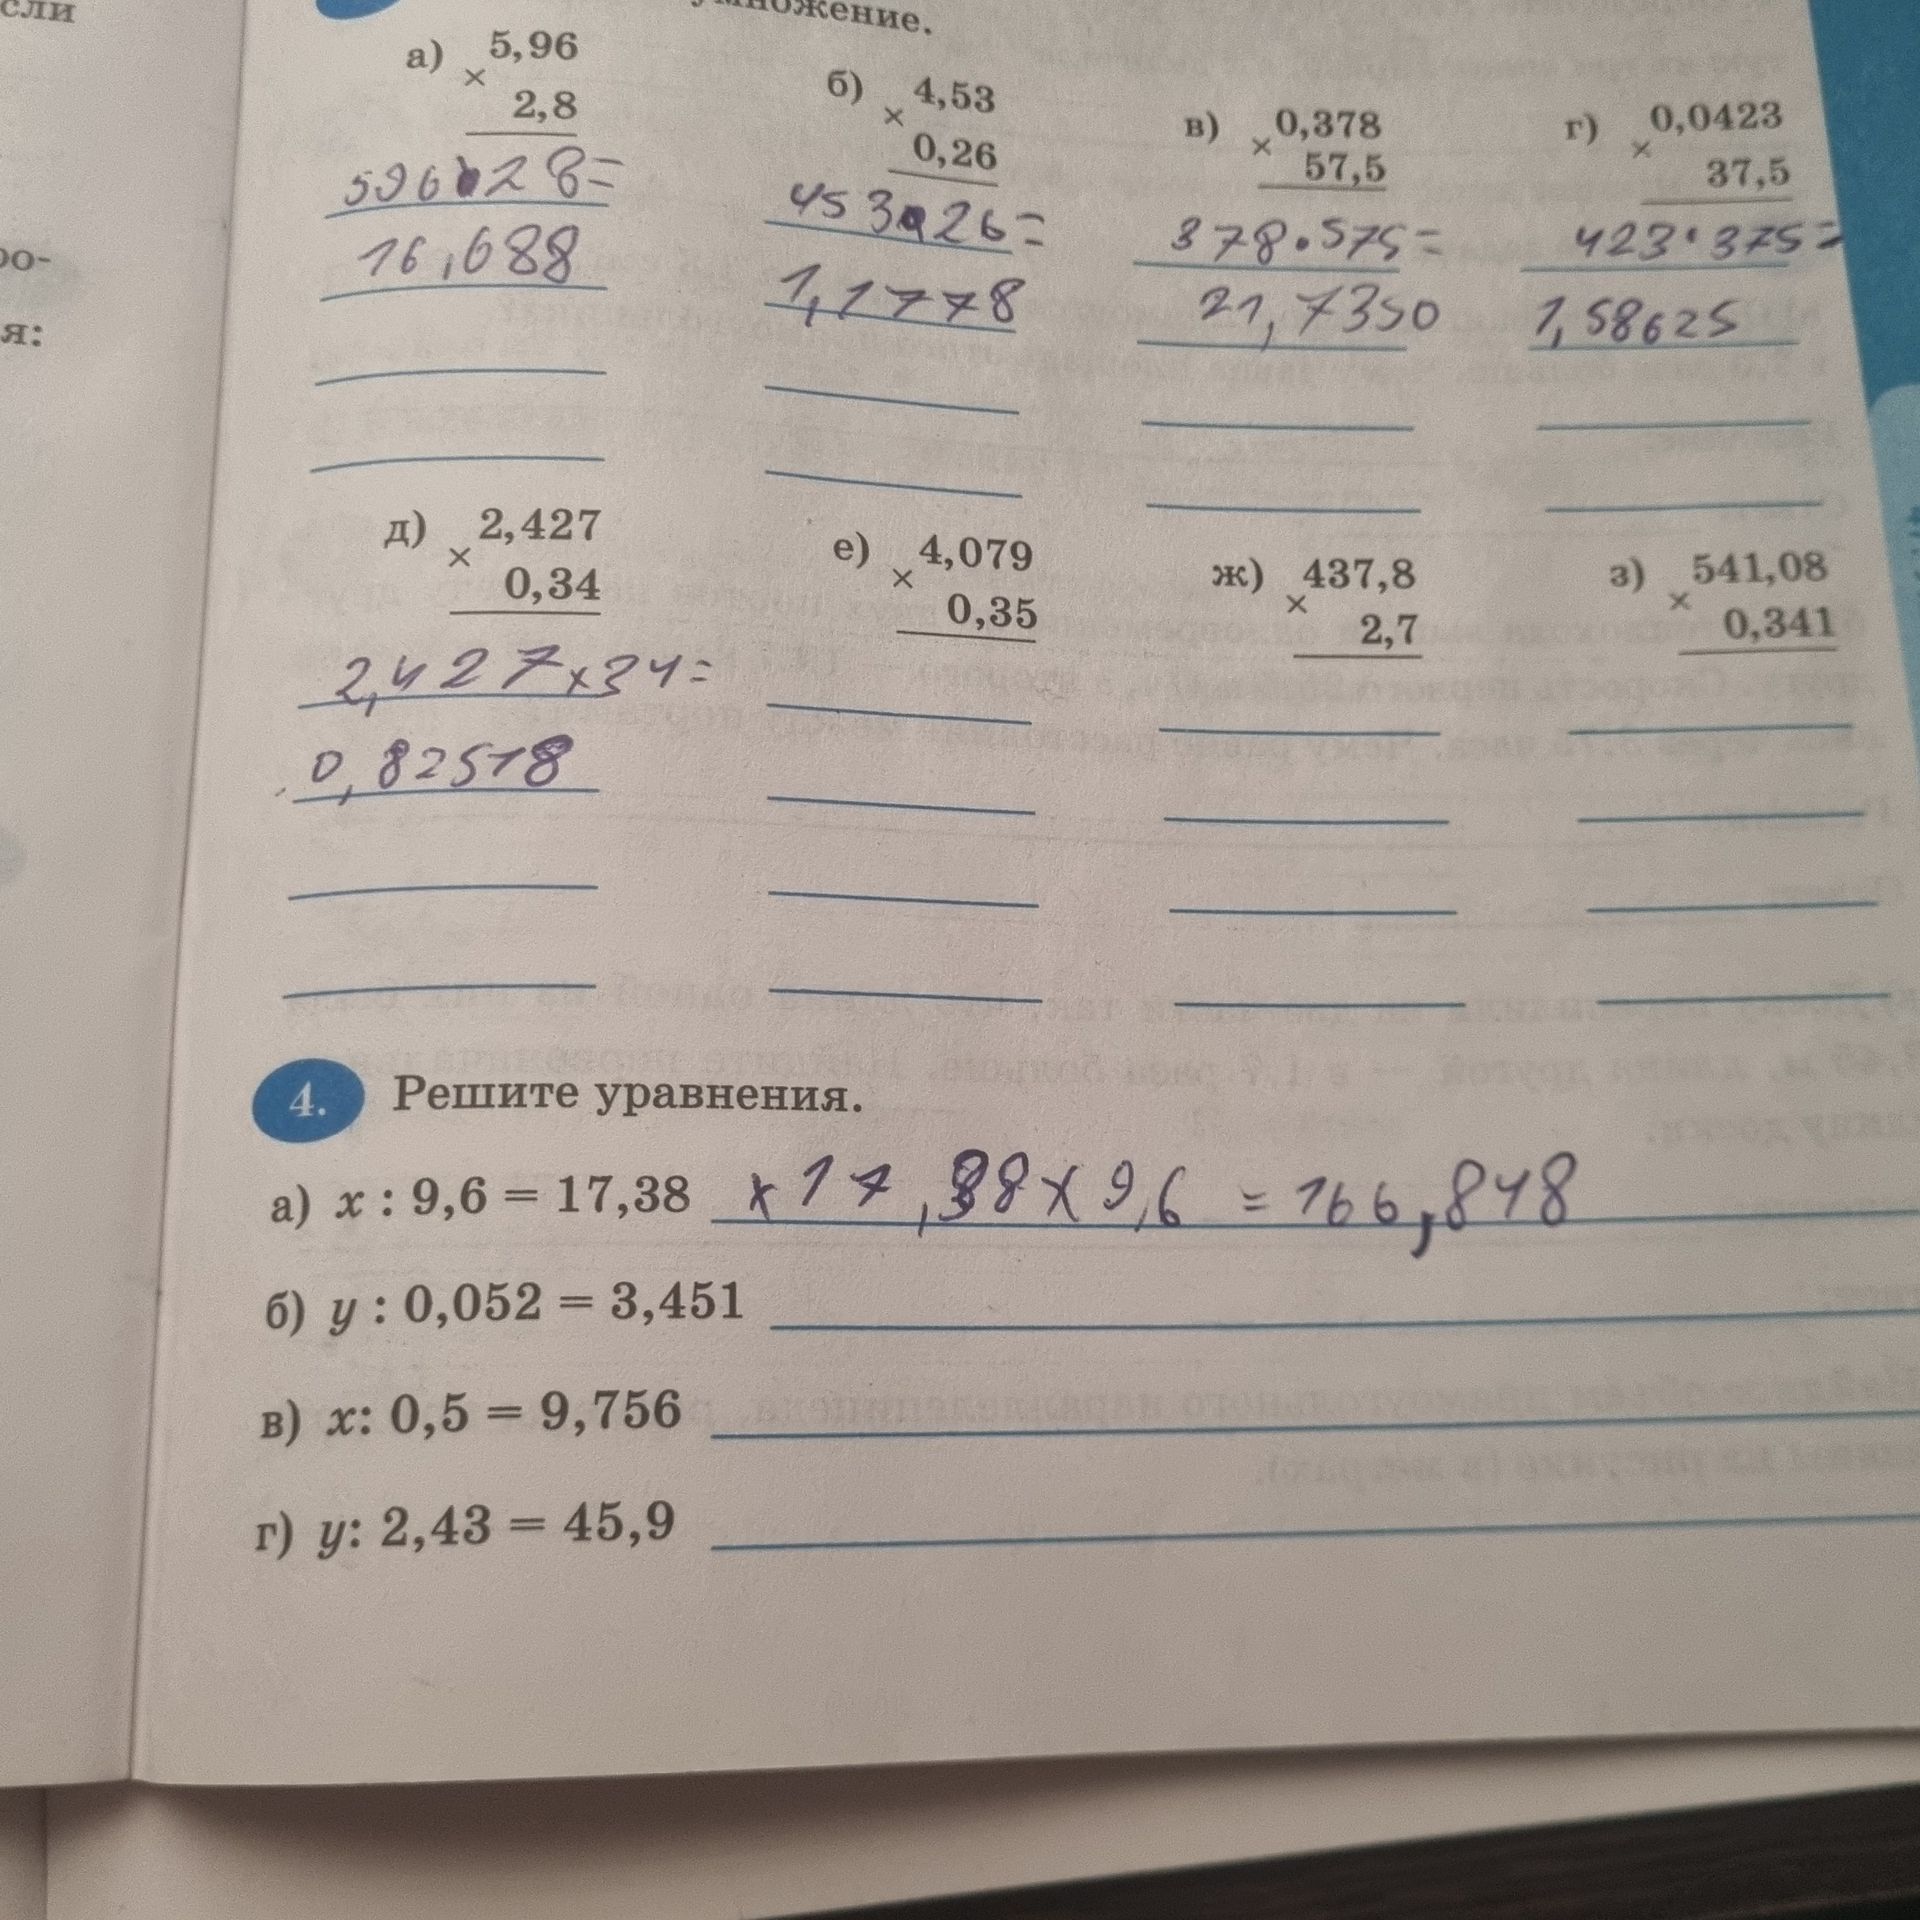 сли
ро-
я:
умножение.
а) × 5,96
2,8
596·28=
16,688
б) × 4,53
0,26
453·26=
1,1778
в) × 0,378
57,5
378·575=
21,7350
г) × 0,0423
37,5
423·375=
1,58625
д) × 2,427
0,34
2,427x34=
0,82518
е) × 4,079
0,35
ж) × 437,8
2,7
з) × 541,08
0,341
4. Решите уравнения.
а) x : 9,6 = 17,38 x 17,38x9,6 = 166,848
б) y : 0,052 = 3,451
в) x: 0,5 = 9,756
г) y: 2,43 = 45,9